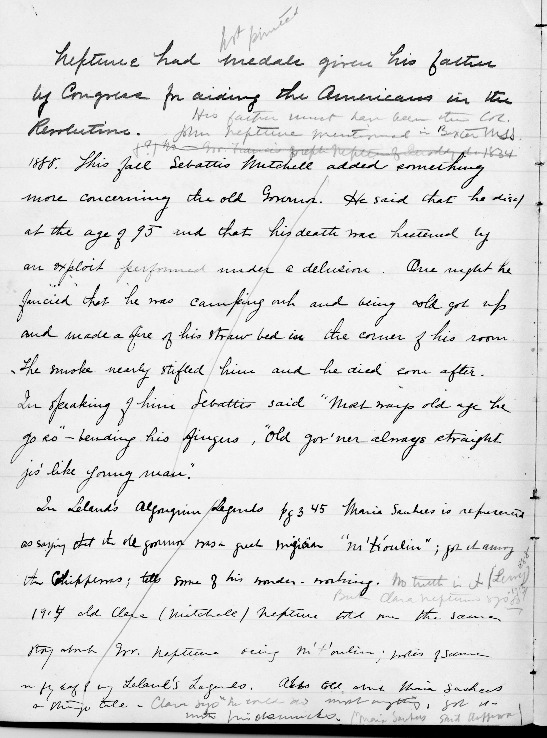 Not printed
Neptune had medals given his father
by Congress for aiding the Americans in the
Revolution. His father must have been the Col.
John Neptune mentioned in Baxter Mss.
1888. This fall Sebattis Mitchell added something
more concerning the old Governor. He said that he died
at the age of 95 and that his death was hastened by
an exploit performed under a delusion. One night he
fancied that he was camping out and being cold got up
and made a fire of his straw bed in the corner of his room
The smoke nearly stifled him and he died soon after.
In speaking of him Sebattis said "Most ways old age he
go so" - bending his fingers, "Old gov'ner always straight
jis' like young man".
In Leland's Algonquin Legends pg 345 Maria Saukees is represented
as saying that the old governor was a great magician "m't'oulin"; got it among
the Chippewas; tells some of his wonder-working. No truth in it
But Clara Neptune says
old Clara (Mitchell) Neptune told me the same
story about Gov. Neptune being m't'oulin; notes of same
in my Leland's Legends. Also told about Maria Saukees
- Clara says he could do most anything, got it